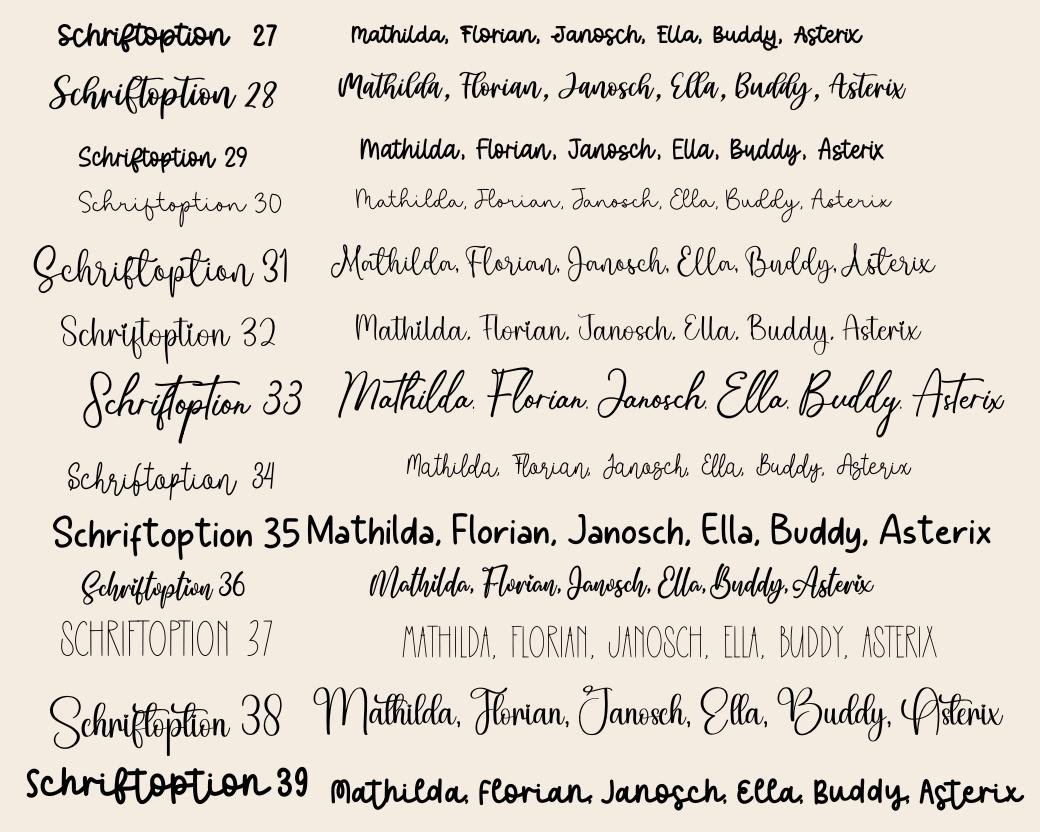 Schriftoption 27 Mathilda, Florian, Janosch, Ella, Buddy, Asterix
Schriftoption 28 Mathilda, Florian, Janosch, Ella, Buddy, Asterix
Schriftoption 29 Mathilda, Florian, Janosch, Ella, Buddy, Asterix
Schriftoption 30 Mathilda, Florian, Janosch, Ella, Buddy, Asterix
Schriftoption 31 Mathilda, Florian, Janosch, Ella, Buddy, Asterix
Schriftoption 32 Mathilda, Florian, Janosch, Ella, Buddy, Asterix
Schriftoption 33 Mathilda, Florian, Janosch, Ella, Buddy, Asterix
Schriftoption 34 Mathilda, Florian, Janosch, Ella, Buddy, Asterix
Schriftoption 35 Mathilda, Florian, Janosch, Ella, Buddy, Asterix
Schriftoption 36 Mathilda, Florian, Janosch, Ella, Buddy, Asterix
SCHRIFTOPTION 37 MATHILDA, FLORIAN, JANOSCH, ELLA, BUDDY, ASTERIX
Schriftoption 38 Mathilda, Florian, Janosch, Ella, Buddy, Asterix
Schriftoption 39 Mathilda, Florian, Janosch, Ella, Buddy, Asterix